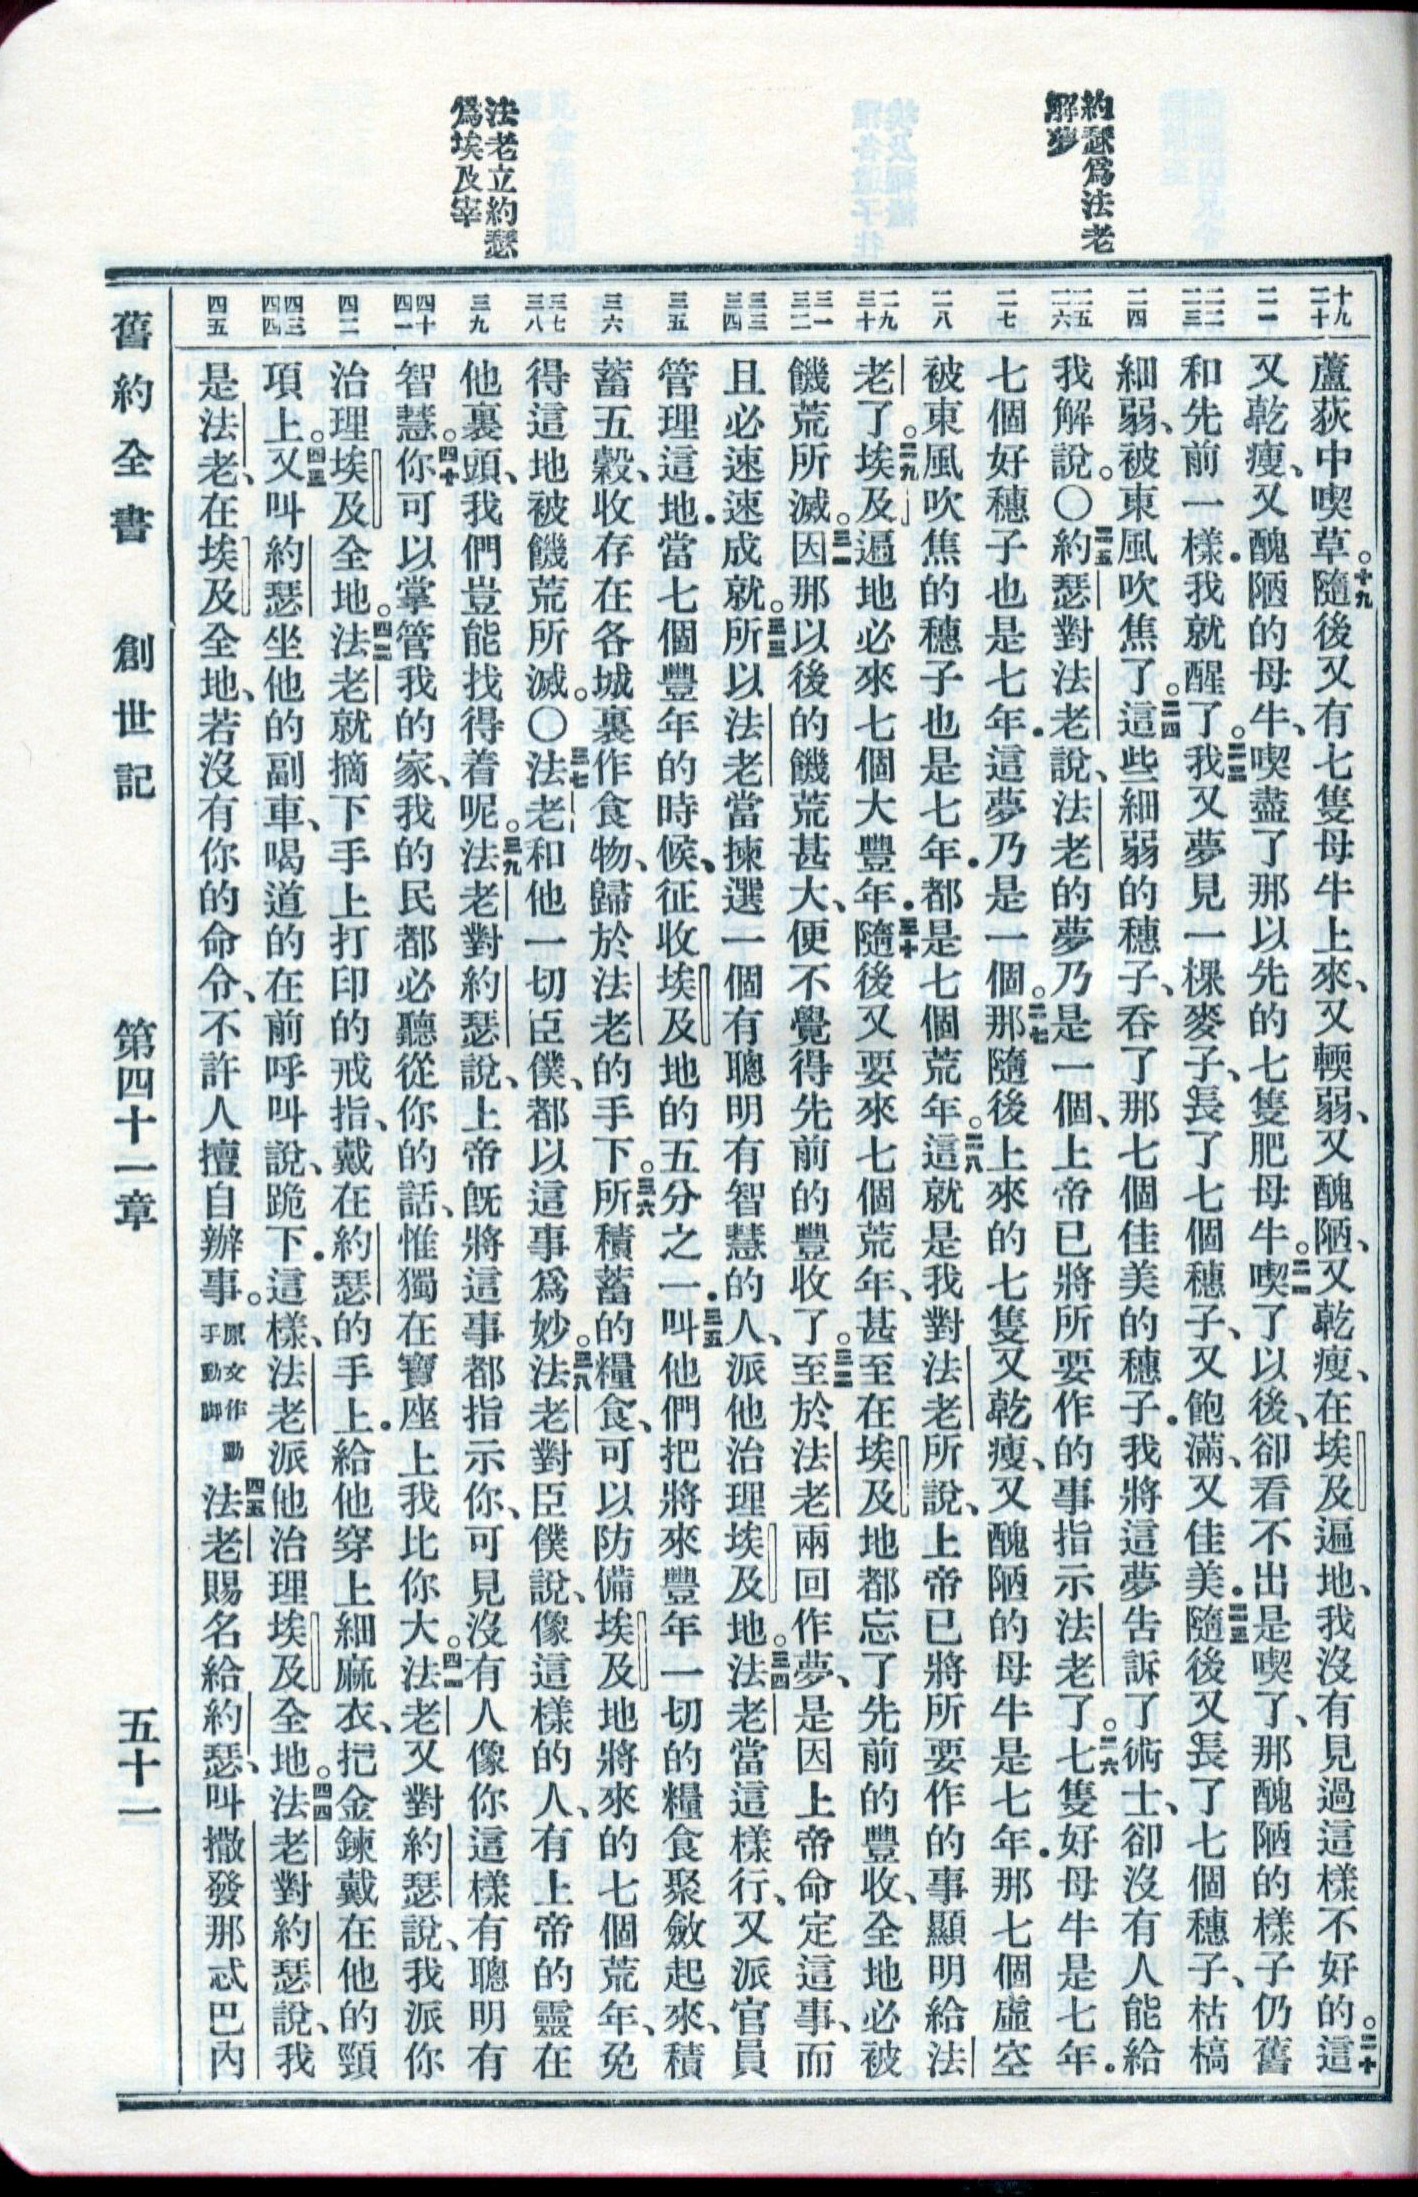 約瑟爲法老
解夢
法老立約瑟
爲埃及宰
十九 二十
二一
二二 二三
二四
二五 二六
二七
二八
二九 三十
三一 三二
三三 三四
三五
三六
三七 三八
三九
四十 四一
四二
四三 四四
四五
蘆荻中喫草。十九隨後又有七隻母牛上來、又輭弱、又醜陋、又乾瘦、在埃及遍地、我沒有見過這樣不好的。二十這
又乾瘦、又醜陋的母牛、喫盡了那以先的七隻肥母牛。二一喫了以後、卻看不出是喫了、那醜陋的樣子仍舊
和先前一樣．我就醒了。二二我又夢見一棵麥子、長了七個穗子、又飽滿、又佳美．二三隨後又長了七個穗子、枯槁
細弱、被東風吹焦了。二四這些細弱的穗子、吞了那七個佳美的穗子．我將這夢告訴了術士、卻沒有人能給
我解說。〇二五約瑟對法老說、法老的夢乃是一個、上帝已將所要作的事指示法老了。二六七隻好母牛是七年．
七個好穗子也是七年．這夢乃是一個。二七那隨後上來的七隻又乾瘦、又醜陋的母牛是七年．那七個虛空
被東風吹焦的穗子也是七年．都是七個荒年。二八這就是我對法老所說、上帝已將所要作的事顯明給法
老了。二九埃及遍地必來七個大豐年．三十隨後又要來七個荒年、甚至在埃及地都忘了先前的豐收、全地必被
饑荒所滅。三一因那以後的饑荒甚大、便不覺得先前的豐收了。三二至於法老兩回作夢、是因上帝命定這事、而
且必速速成就。三三所以法老當揀選一個有聰明有智慧的人、派他治理埃及地。三四法老當這樣行、又派官員
管理這地．當七個豐年的時候、征收埃及地的五分之一．三五叫他們把將來豐年一切的糧食聚斂起來、積
蓄五穀、收存在各城裏作食物、歸於法老的手下。三六所積蓄的糧食、可以防備埃及地將來的七個荒年、免
得這地被饑荒所滅。〇三七法老和他一切臣僕、都以這事爲妙。三八法老對臣僕說、像這樣的人、有上帝的靈在
他裏頭、我們豈能找得着呢。三九法老對約瑟說、上帝旣將這事都指示你、可見沒有人像你這樣有聰明有
智慧。四十你可以掌管我的家、我的民都必聽從你的話、惟獨在寶座上我比你大。四一法老又對約瑟說、我派你
治理埃及全地。四二法老就摘下手上打印的戒指、戴在約瑟的手上．給他穿上細麻衣、把金鍊戴在他的頸
項上。四三又叫約瑟坐他的副車、喝道的在前呼叫說、跪下．這樣、法老派他治理埃及全地。四四法老對約瑟說、我
是法老、在埃及全地、若沒有你的命令、不許人擅自辦事。原文作動手動脚 四五法老賜名給約瑟、叫撒發那忒巴內
舊約全書 創世記 第四十一章 五十一